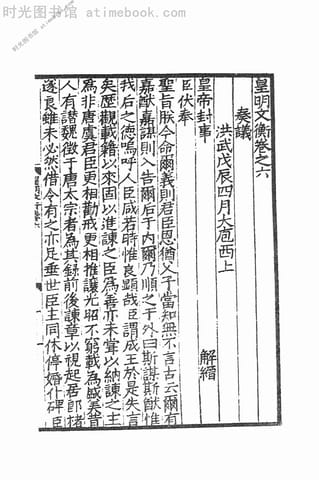 时光图书馆 atimebook.com
皇明文衡卷之六
奏議
洪武戊辰四月大庖西上
皇帝封事
解縉
臣伏奉
聖旨朕今命爾義則君臣恩猶父子當知無不言古云爾有
嘉猷嘉謀則入告爾后于内爾乃順之于外曰斯謀斯猷惟
我后之德嗚呼人臣咸若時惟良顯哉臣謂成王於是失言
矣歷觀載籍以來固以進諫之臣為善亦未嘗以納諫之主
為非唐虞君臣更相勸戒更相推讓光昭不窮載為盛美昔
人有譛魏徵于唐太宗者為其錄前後諫章以視起居郎褚
遂良雖未必然借令有之亦足垂世臣主同休停婚仆碑臣
时光图书馆 atimebook.com